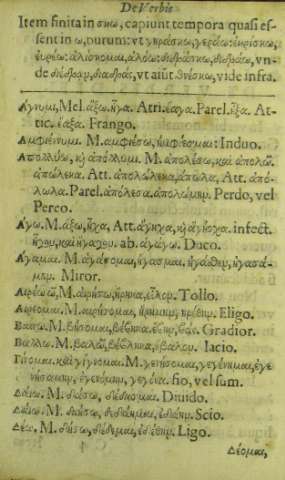 De Verbis
Item finita in σκω, capiunt tempora quasi es-
sent in ω, purum: vt γηράσκω, γεράω: εὑρίσκω,
εὑρέω: ἁλίσκομαι, ἁλόω: διδράσκω, διδράω, vn-
de vt aiūt. θνέσκω, vide infra.
Αγνυμι, Mel. ἄξω. ἦχα. Atti. ἔαγα. Parel. ἦξα. At-
tic. ἔαξα. Frango.
Αμφιένυμι. M. ἀμφιέσω, ἠμφίεσμαι: Induo.
Απολλύω, καὶ ἀπόλλυμι. M. ἀπολέσω, καὶ ἀπολῶ.
ἀπώλεκα. Att. ἀπολώλεκα, ἀπωλα, Att. ἀπό-
λωλα. Parel. ἀπόλεσα. ἀπολώμην. Perdo, vel
Pereo.
Αγω. M. ἄξω, ἦχα, Att. ἀγηχα, καὶ ἀγήοχα. infect.
ἦγον, καὶ ἤγαγον. ab. ἀγάγω. Duco.
Αγαμαι. M. ἀγάσομαι, ἤγασμαι. ἠγάσθην, ἠγασά-
μην. Miror.
Αἱρέω, M. αἱρήσω, ἥρηκα, εἷλον. Tollo.
Αἱρέομαι. M. αἱρήσομαι, ἥρημαι, ἡρέθην. Eligo.
Βαίνω. M. βήσομαι, βέβηκα, ἔβην, βάς. Gradior.
Βάλλω. M. βαλῶ, βέβληκα, ἔβαλον. Iacio.
Γείνομαι. καὶ γίγνομαι. M. γενήσομαι, γεγένημαι, ἐγε
νησάμην, ἐγενόμην, γέγονα. fio, vel sum.
Δαίω. M. δαίσω, δέδασμαι. Diuido.
Δαίω. M. δαήσω, δεδάημαι, ἐδάην. Scio.
Δέω. M. δήσω, δέδεμαι, ἐδέθην. Ligo.
Δέομαι,